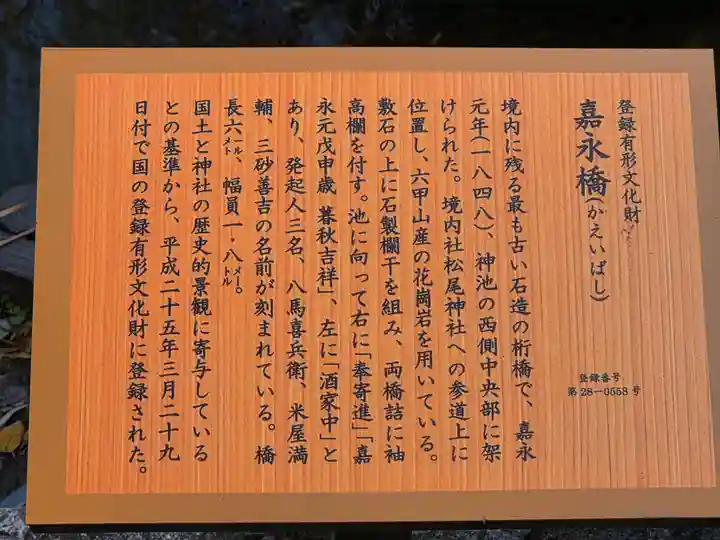 登録有形文化財
嘉永橋(かえいばし)
登録番号
第28-0558号
境内に残る最も古い石造の桁橋で、嘉永
元年(一八四八)、神池の西側中央部に架
けられた。境内社松尾神社への参道上に
位置し、六甲山産の花崗岩を用いている。
敷石の上に石製欄干を組み、両橋詰に袖
高欄を付す。池に向って右に「奉寄進」「嘉
永元戊申歳 暮秋吉祥」、左に「酒家中」と
あり、発起人三名、八馬喜兵衛、米屋満
輔、三砂善吉の名前が刻まれている。橋
長六メートル、幅員一・八メートル。
国土と神社の歴史的景観に寄与している
との基準から、平成二十五年三月二十九
日付で国の登録有形文化財に登録された。